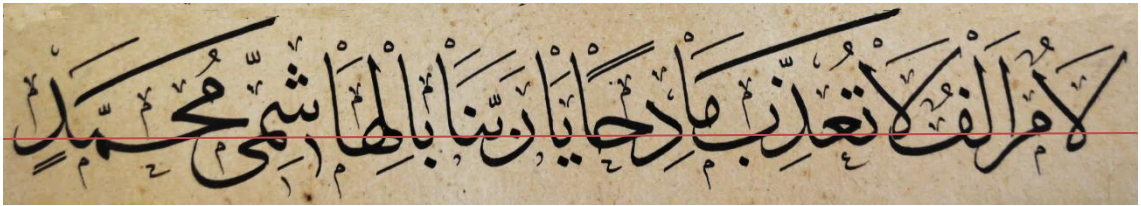 لَامُ الْفُ لَا تُعَذِّبْ مَادِحًا يَا رَبَّنَا بِالْهَاشِمِيِّ مُحَمَّدٍ